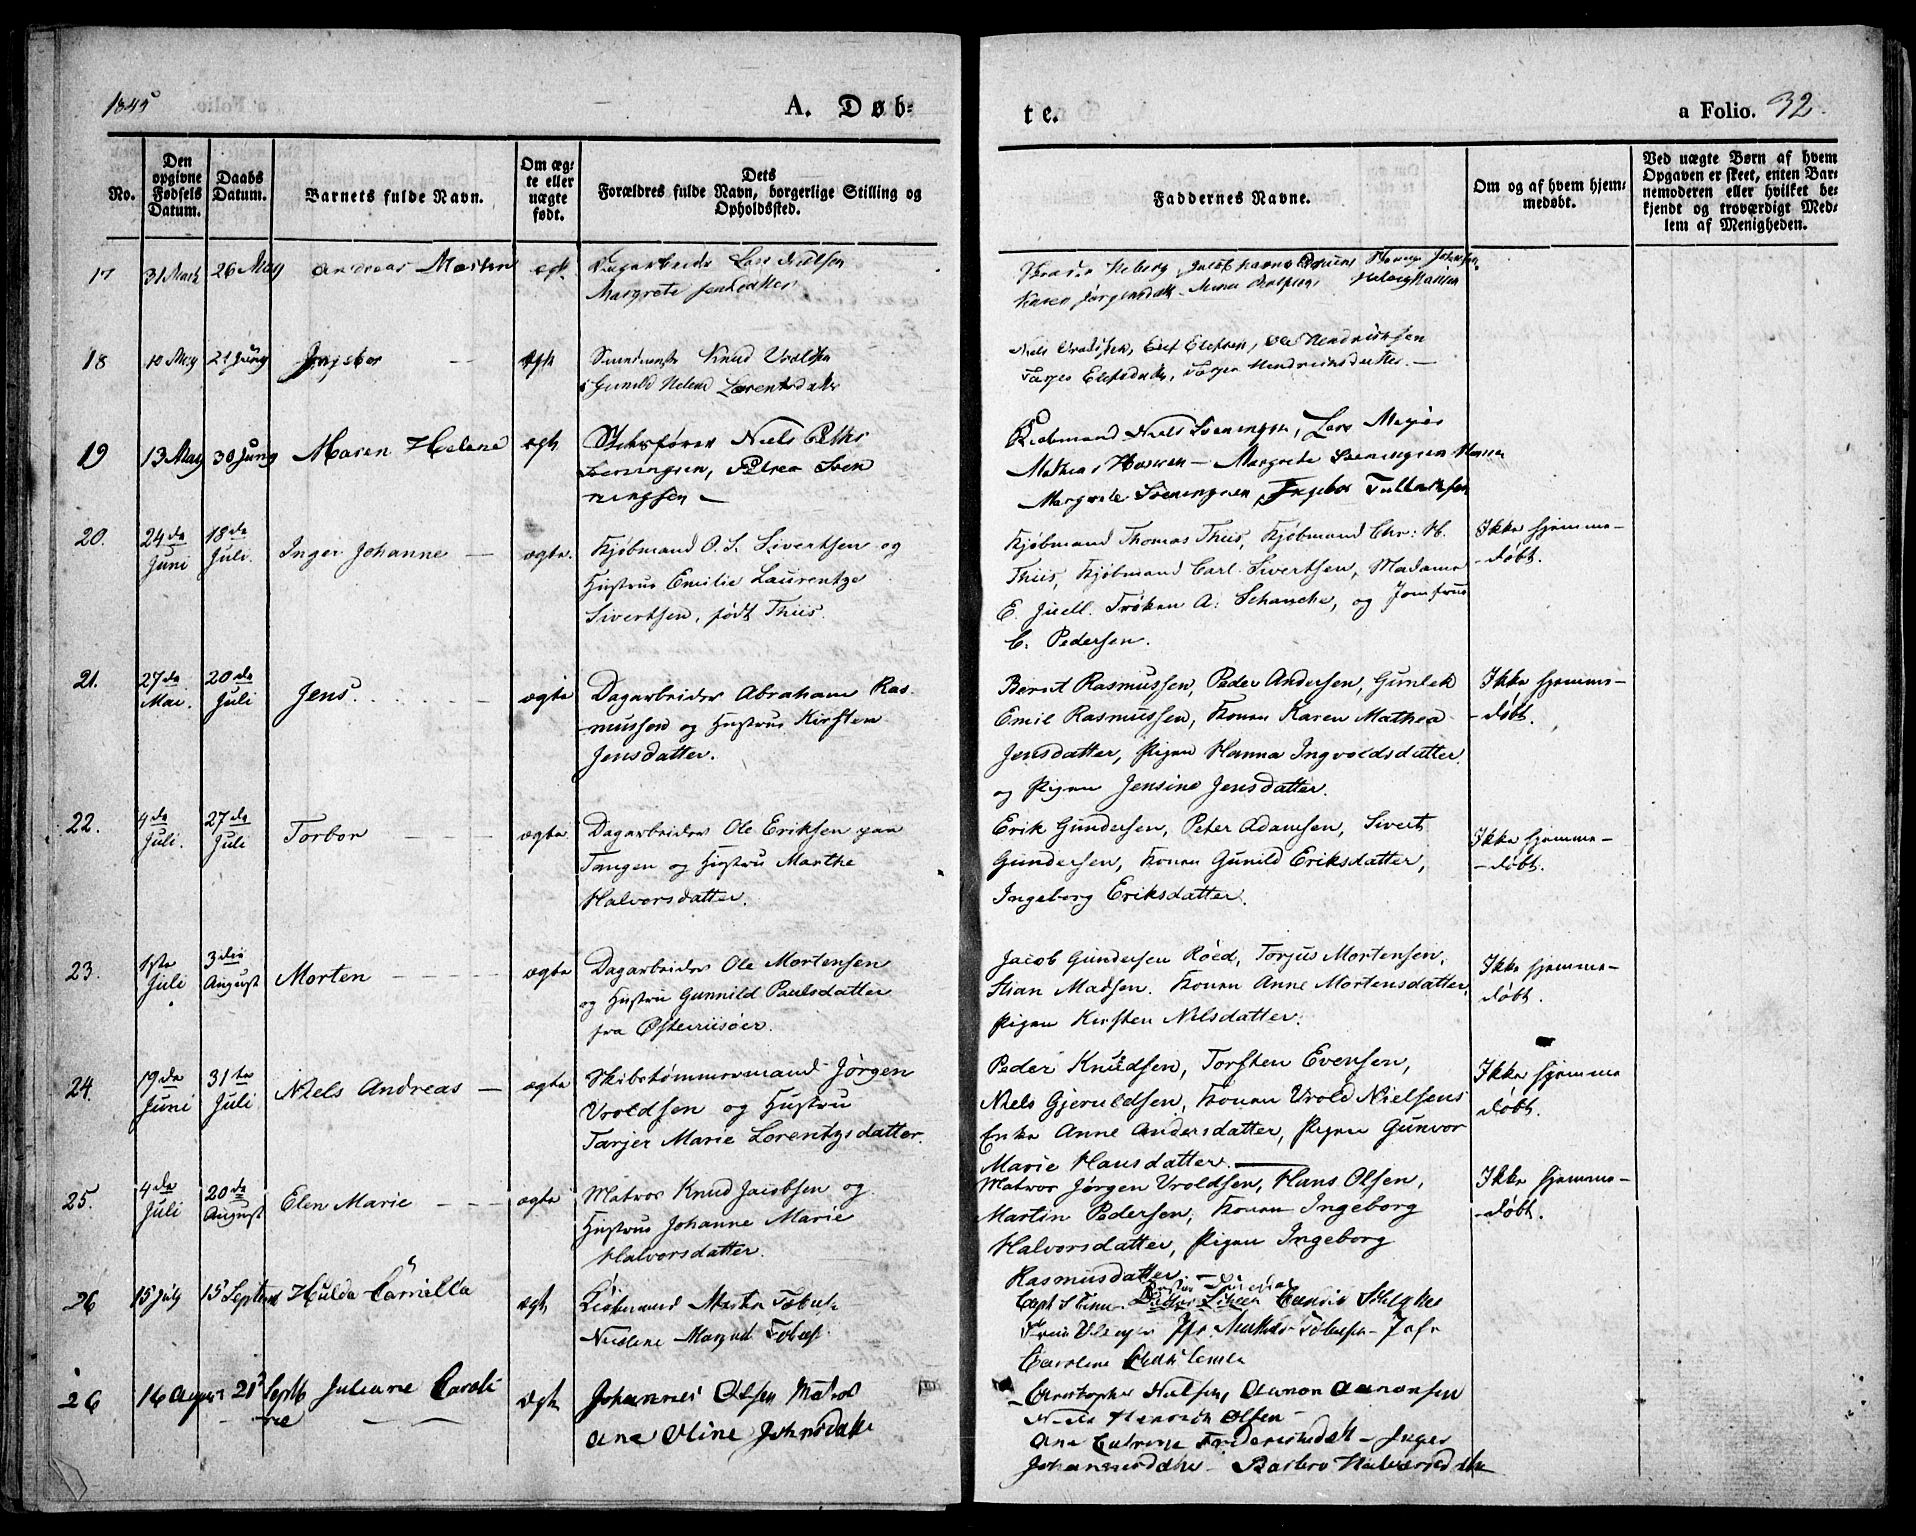 1845
A. Døb=
te.
a Folio. 32.
No.
Den opgivne Fødsels Datum.
Daabs Datum.
Barnets fulde Navn.
Om æg=
te eller
uægte
født.
Dets
Forældres fulde Navn, borgerlige Stilling og
Opholdssted.
Faddernes Navne.
Om og af hvem hjem=
medøbt.
Ved uægte Børn af hvem
Opgaven er skeet, enten Bar=
nemoderen eller hvilket be=
kjendt og troværdigt Med=
lem af Menigheden.
17 31 Marts 26 May Andreas Morten ægt. Dagarbeider Lars
Margrete
Karen Jørgensdatt
18 10 May 21 Juny Ingebor ægte Knud Vroldsen
Gunild Helene Lorentsdatter
Niels Vroldsen, Elef Elefsen, Ole Hendricksen
Tarjer Elefsdatter, Tarjer Hendricksdatter. —
19 13 May 30 Juny Maren Helene ægte Niels Petter
Sveningsen, Petrea Sven
ningsen —
Kiöbmand Niels Sveningsen, Lars Meyer
Mathias Hansen — Margrete Sveningsen
Margrete Sveningsen, Ingebor Tellefsen
20. 24de Juni 18de Juli. Inger Johanne — ægte. Kjöbmand O. S. Sivertsen og
Hustrue Emilie Laurentze
Sivertsen, født Thiis.
Kjöbmand Thomas Thiis, Kjöbmand Chr: H.
Thiis, Kjöbmand Carl Sivertsen, Madame
E. Juell. Fröken A: Schanche, og Jomfrue
C. Pedersen.
Ikke hjemme-
-døbt.
21. 27de Mai 20de Juli Jens. ægte Dagarbeider Abraham Ras-
mussen og Hustrue Kirsten
Jensdatter.
Bernt Rasmussen, Peder Andersen, Gunlek
Emil Rasmussen, Konen Karen Mathea
Jensdatter, Pigen Hanna Ingvoldsdatter
og Pigen Jensine Jensdatter.
Ikke hjemme-
-døbt.
22. 4de Juli. 27de Juli Torbor ægte Dagarbeider Ole Eriksen paa
Tangen og Hustru Marthe
Halvorsdatter.
Erik Gundersen, Peter Adamsen, Sivert
Gundersen, Konen Gunild Eriksdatter,
Ingeborg Eriksdatter.
Ikke hjemme-
-døbt.
23. 1ste Juli 3die August Morten ægte Dagarbeider Ole Mortensen
og Hustru Gunnild Paulsdatter
fra Østerriisøer.
Jacob Gundersen Röed, Torjus Mortensen,
Stian Madsen. Konen Anne Mortensdatter,
Pigen Kirsten Nilsdatter.
Ikke hjemme-
døbt.
24. 19de Juni 31te Juli Niels Andreas — ægte Skibstömmermand Jörgen
Vroldsen og Hustru
Tarjer Marie Lorentzsdatter.
Peder Knudsen, Torsten Evensen,
Niels Gjeruldsen, Konen Vrold Nielsens
Enke Anne Andersdatter, Pigen Gunvor
Marie Hansdatter. —
Ikke hjemme
døbt.
25. 4de Juli 20de August Elen Marie ægte Matros Knud Jacobsen og
Hustrue Johanne Marie
Halvorsdatter.
Matros Jörgen Vroldsen, Hans Olsen,
Martin Pedersen, Konen Ingeborg
Halvorsdatter, Pigen Ingeborg
Rasmusdatter —
Ikke hjemme-
-døbt.
26 15 July 15 Septem Hulda Camilla ægt Kiöbmand
Caroline
26 16 August 21 Septb Juliane Caroli
ne
ægte Johannes Olsen Matros
Ane Oline Johnsdatter
Christopher Nielsen, Aanon Aanonsen
Niels Henrich Olsen —
Ane Catrine — Inger
Johannesdatter — Barbro Halvorsdatter